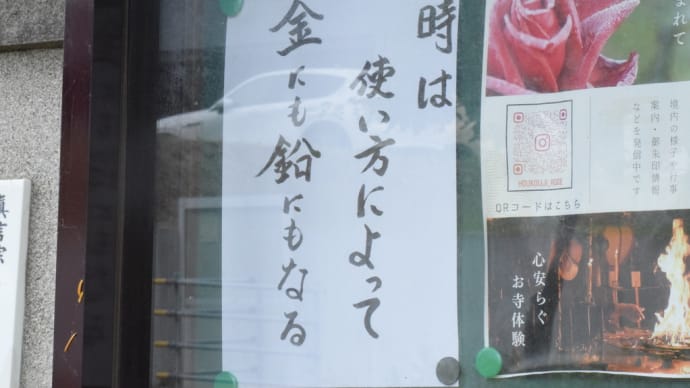 時は
使い方によって
金にも鉛にもなる
まれて
境内の様子や行事
案内・御朱印情報
などを発信中です
QRコードはこちら
心安らぐ
お寺体験
真言宗